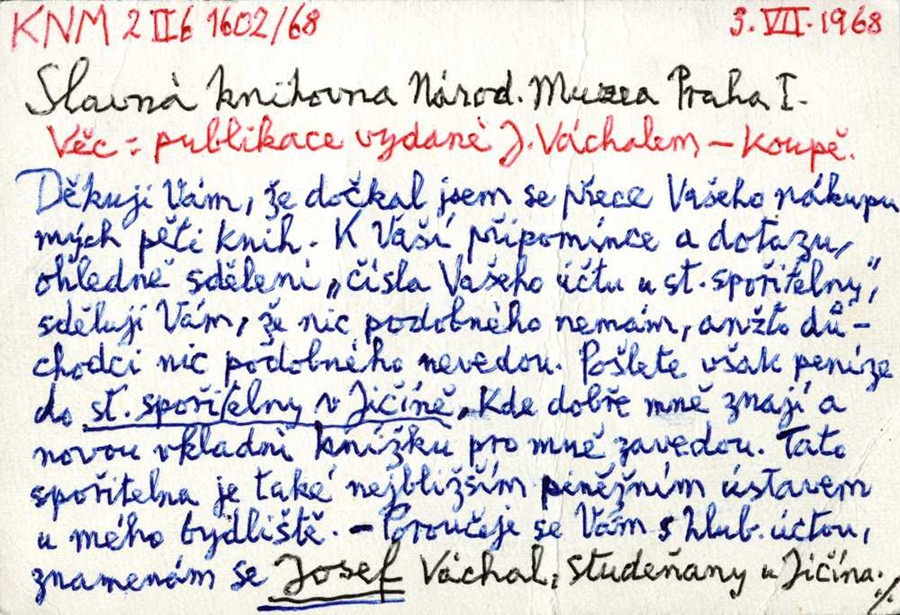 KNM 2 II6 1602/68 3. VII. 1968
Slavná knihovna Národ. Muzea Praha I.
Věc = publikace vydané J. Váchalem — Koupě.
Děkuji Vám, že dočkal jsem se přece Vašeho nákupu
mých pěti knih. K Vaší připomínce a dotazu,
ohledně sdělení „čísla Vašeho účtu u st. spořitelny",
sděluji Vám, že nic podobného nemám, anžto dů-
chodci nic podobného nevedou. Pošlete však peníze
do st. spořitelny v Jičíně, kde dobře mně znají a
novou vkladní knížku pro mně zavedou. Tato
spořitelna je také nejbližším peněžním ústavem
u mého bydliště. — Poroučeje se Vám s hlub. úctou,
znamenám se Josef Váchal, Studeňany u Jičína. ./.